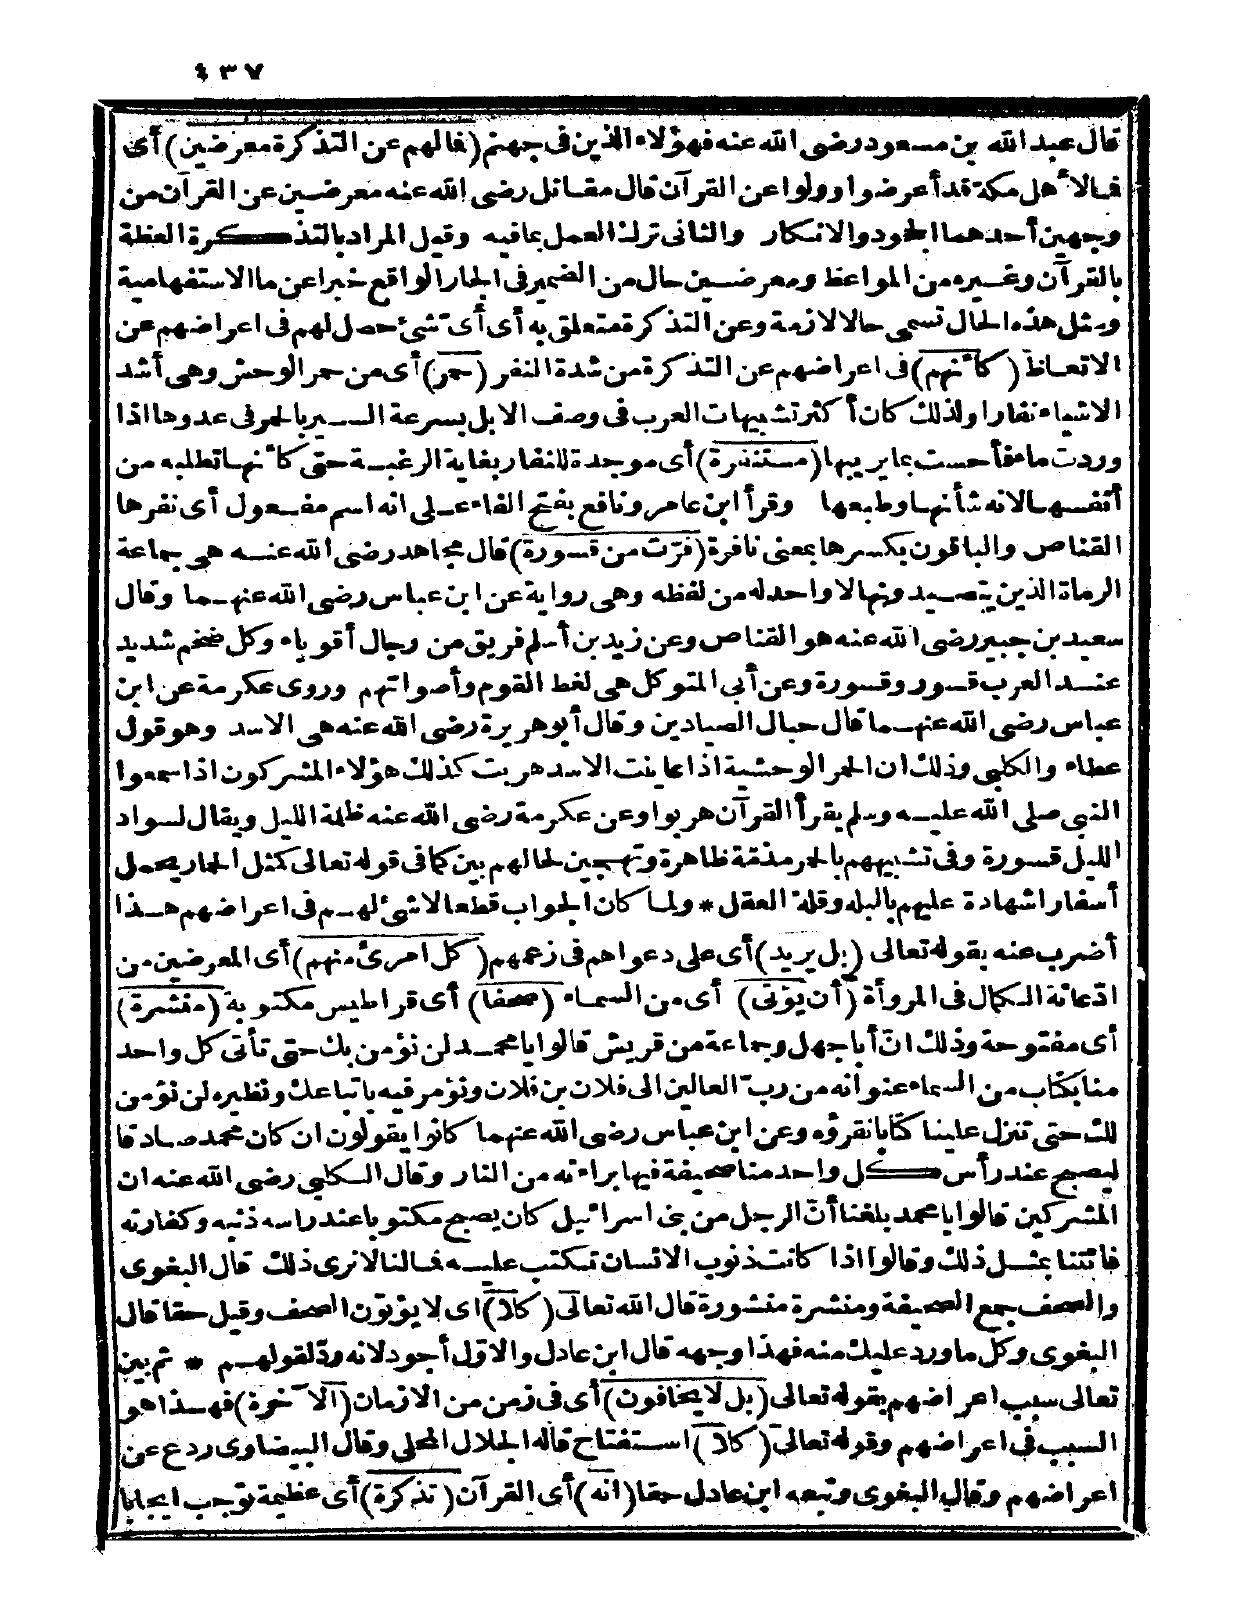 ٤٣٧
قال عبد الله بن مسعود رضى الله عنه فهؤلاء الذين فى جهنم (فما لهم عن التذكرة معرضين) أى
فمالأهل مكة قد أعرضوا وولوا عن القرآن قال مقاتل رضى الله عنه معرضين عن القرآن من
وجهين أحدهما الجحود والانكار والثانى ترك العمل بما فيه وقيل المراد بالتذكرة العظة
بالقرآن وغيره من المواعظ ومعرضين حال من الضمير فى الجار الواقع خبرا عن ما الاستفهامية
ومثل هذه الحال تسمى حالا لازمة وعن التذكرة متعلق به أى أى شئ حصل لهم فى اعراضهم عن
الاتعاظ (كأنهم) فى اعراضهم عن التذكرة من شدة النفر (حمر) أى من حمر الوحش وهى أشد
الاشياء نفارا ولذلك كان أكثر تشبيهات العرب فى وصف الابل بسرعة السير بالحمر فى عدوها اذا
وردت ماء فأحست بما يريبها (مستنفرة) أى موجدة للنفار بغاية الرغبة حتى كأنها تطلبه من
أنفسها لانه شأنها وطبعها وقرأ ابن عامر ونافع بفتح الفاء على انه اسم مفعول أى نفرها
القناص والباقون بكسرها بمعنى نافرة (فرّت من قسورة) قال مجاهد رضى الله عنه هى جماعة
الرماة الذين يتصيدونها لا واحد له من لفظه وهى رواية عن ابن عباس رضى الله عنهما وقال
سعيد بن جبير رضى الله عنه هو القناص وعن زيد بن أسلم فريق من رجال أقوياء وكل ضخم شديد
عند العرب قسور وقسورة وعن أبى المتوكل هى لغط القوم وأصواتهم وروى عكرمة عن ابن
عباس رضى الله عنهما قال حبال الصيادين وقال أبو هريرة رضى الله عنه هى الاسد وهو قول
عطاء والكلبى وذلك ان الحمر الوحشية اذا عاينت الاسد هربت كذلك هؤلاء المشركون اذا سمعوا
النبى صلى الله عليه وسلم يقرأ القرآن هربوا وعن عكرمة رضى الله عنه ظلمة الليل ويقال لسواد
الليل قسورة وفى تشبيههم بالحمر مذمّة ظاهرة وتهجين لحالهم بين كما فى قوله تعالى كمثل الحمار يحمل
أسفارا شهادة عليهم بالبله وقلة العقل * ولما كان الجواب قطعا لا شئ لهم فى اعراضهم هذا
أضرب عنه بقوله تعالى (بل يريد) أى على دعواهم فى زعمهم (كل امرئ منهم) أى المعرضين من
ادّعائه الكمال فى المروأة (أن يؤتى) أى من السماء (صحفا) أى قراطيس مكتوبة (منشرة)
أى مفتوحة وذلك انّ أبا جهل وجماعة من قريش قالوا يا محمد لن نؤمن بك حتى تأتى كل واحد
منا بكتاب من السماء عنوانه من رب العالمين الى فلان بن فلان ونؤمر فيه باتباعك ونظيره لن نؤمن
لك حتى تنزل علينا كتابا نقرؤه وعن ابن عباس رضى الله عنهما كانوا يقولون ان كان محمد صادقا
ليصبح عند رأس كل واحد منا صحيفة فيها براءته من النار وقال الكلبى رضى الله عنه ان
المشركين قالوا يا محمد بلغنا أنّ الرجل من بنى اسرائيل كان يصبح مكتوبا عند راسه ذنبه وكفارته
فائتنا بمثل ذلك وقالوا اذا كانت ذنوب الانسان تكتب عليه فمالنا لا نرى ذلك قال البغوى
والصحف جمع الصحيفة ومنشرة منشورة قال الله تعالى (كلا) اى لا يؤتون الصحف وقيل حقا قال
البغوى وكل ما ورد عليك منه فهذا وجهه قال ابن عادل والاوّل أجود لانه ردّ لقولهم * ثم بين
تعالى سبب اعراضهم بقوله تعالى (بل لا يخافون) أى فى زمن من الازمان (الآخرة) فهذا هو
السبب فى اعراضهم وقوله تعالى (كلا) استفتاح قاله الجلال المحلى وقال البيضاوى ردع عن
اعراضهم وقال البغوى وتبعه ابن عادل حقا (انه) أى القرآن (تذكرة) أى عظيمة توجب ايجابا